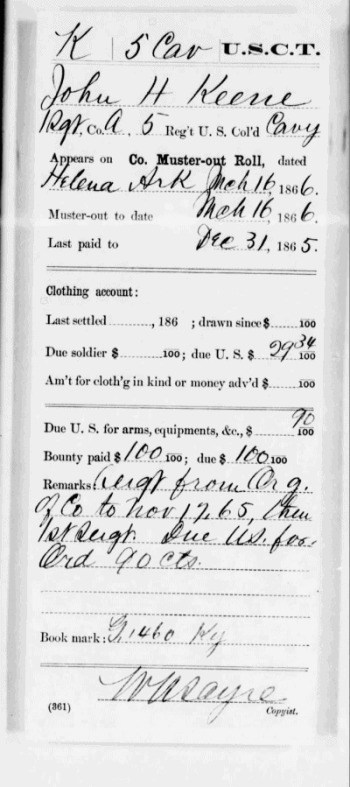 K 5 Cav U.S.C.T.
John H Keene
1 Sgt, Co. A, 5 Reg't U. S. Col'd Cavy
Appears on Co. Muster-out Roll, dated
Helena Ark Mch 16, 1866.
Muster-out to date Mch 16, 1866.
Last paid to Dec 31, 1865.
Clothing account:
Last settled , 186 ; drawn since $ 100
Due soldier $ 100; due U. S. $ 29 34/100
Am't for cloth'g in kind or money adv'd $ 100
Due U. S. for arms, equipments, &c., $ 90/100
Bounty paid $ 100 100; due $ 100 100
Remarks: Sergt from Org.
of Co to Nov 17, 65, then
1st Sergt. Due U.S. for
Ord 90 cts.
Book mark: G. 1460 Ky
W A Sayre
(361) Copyist.